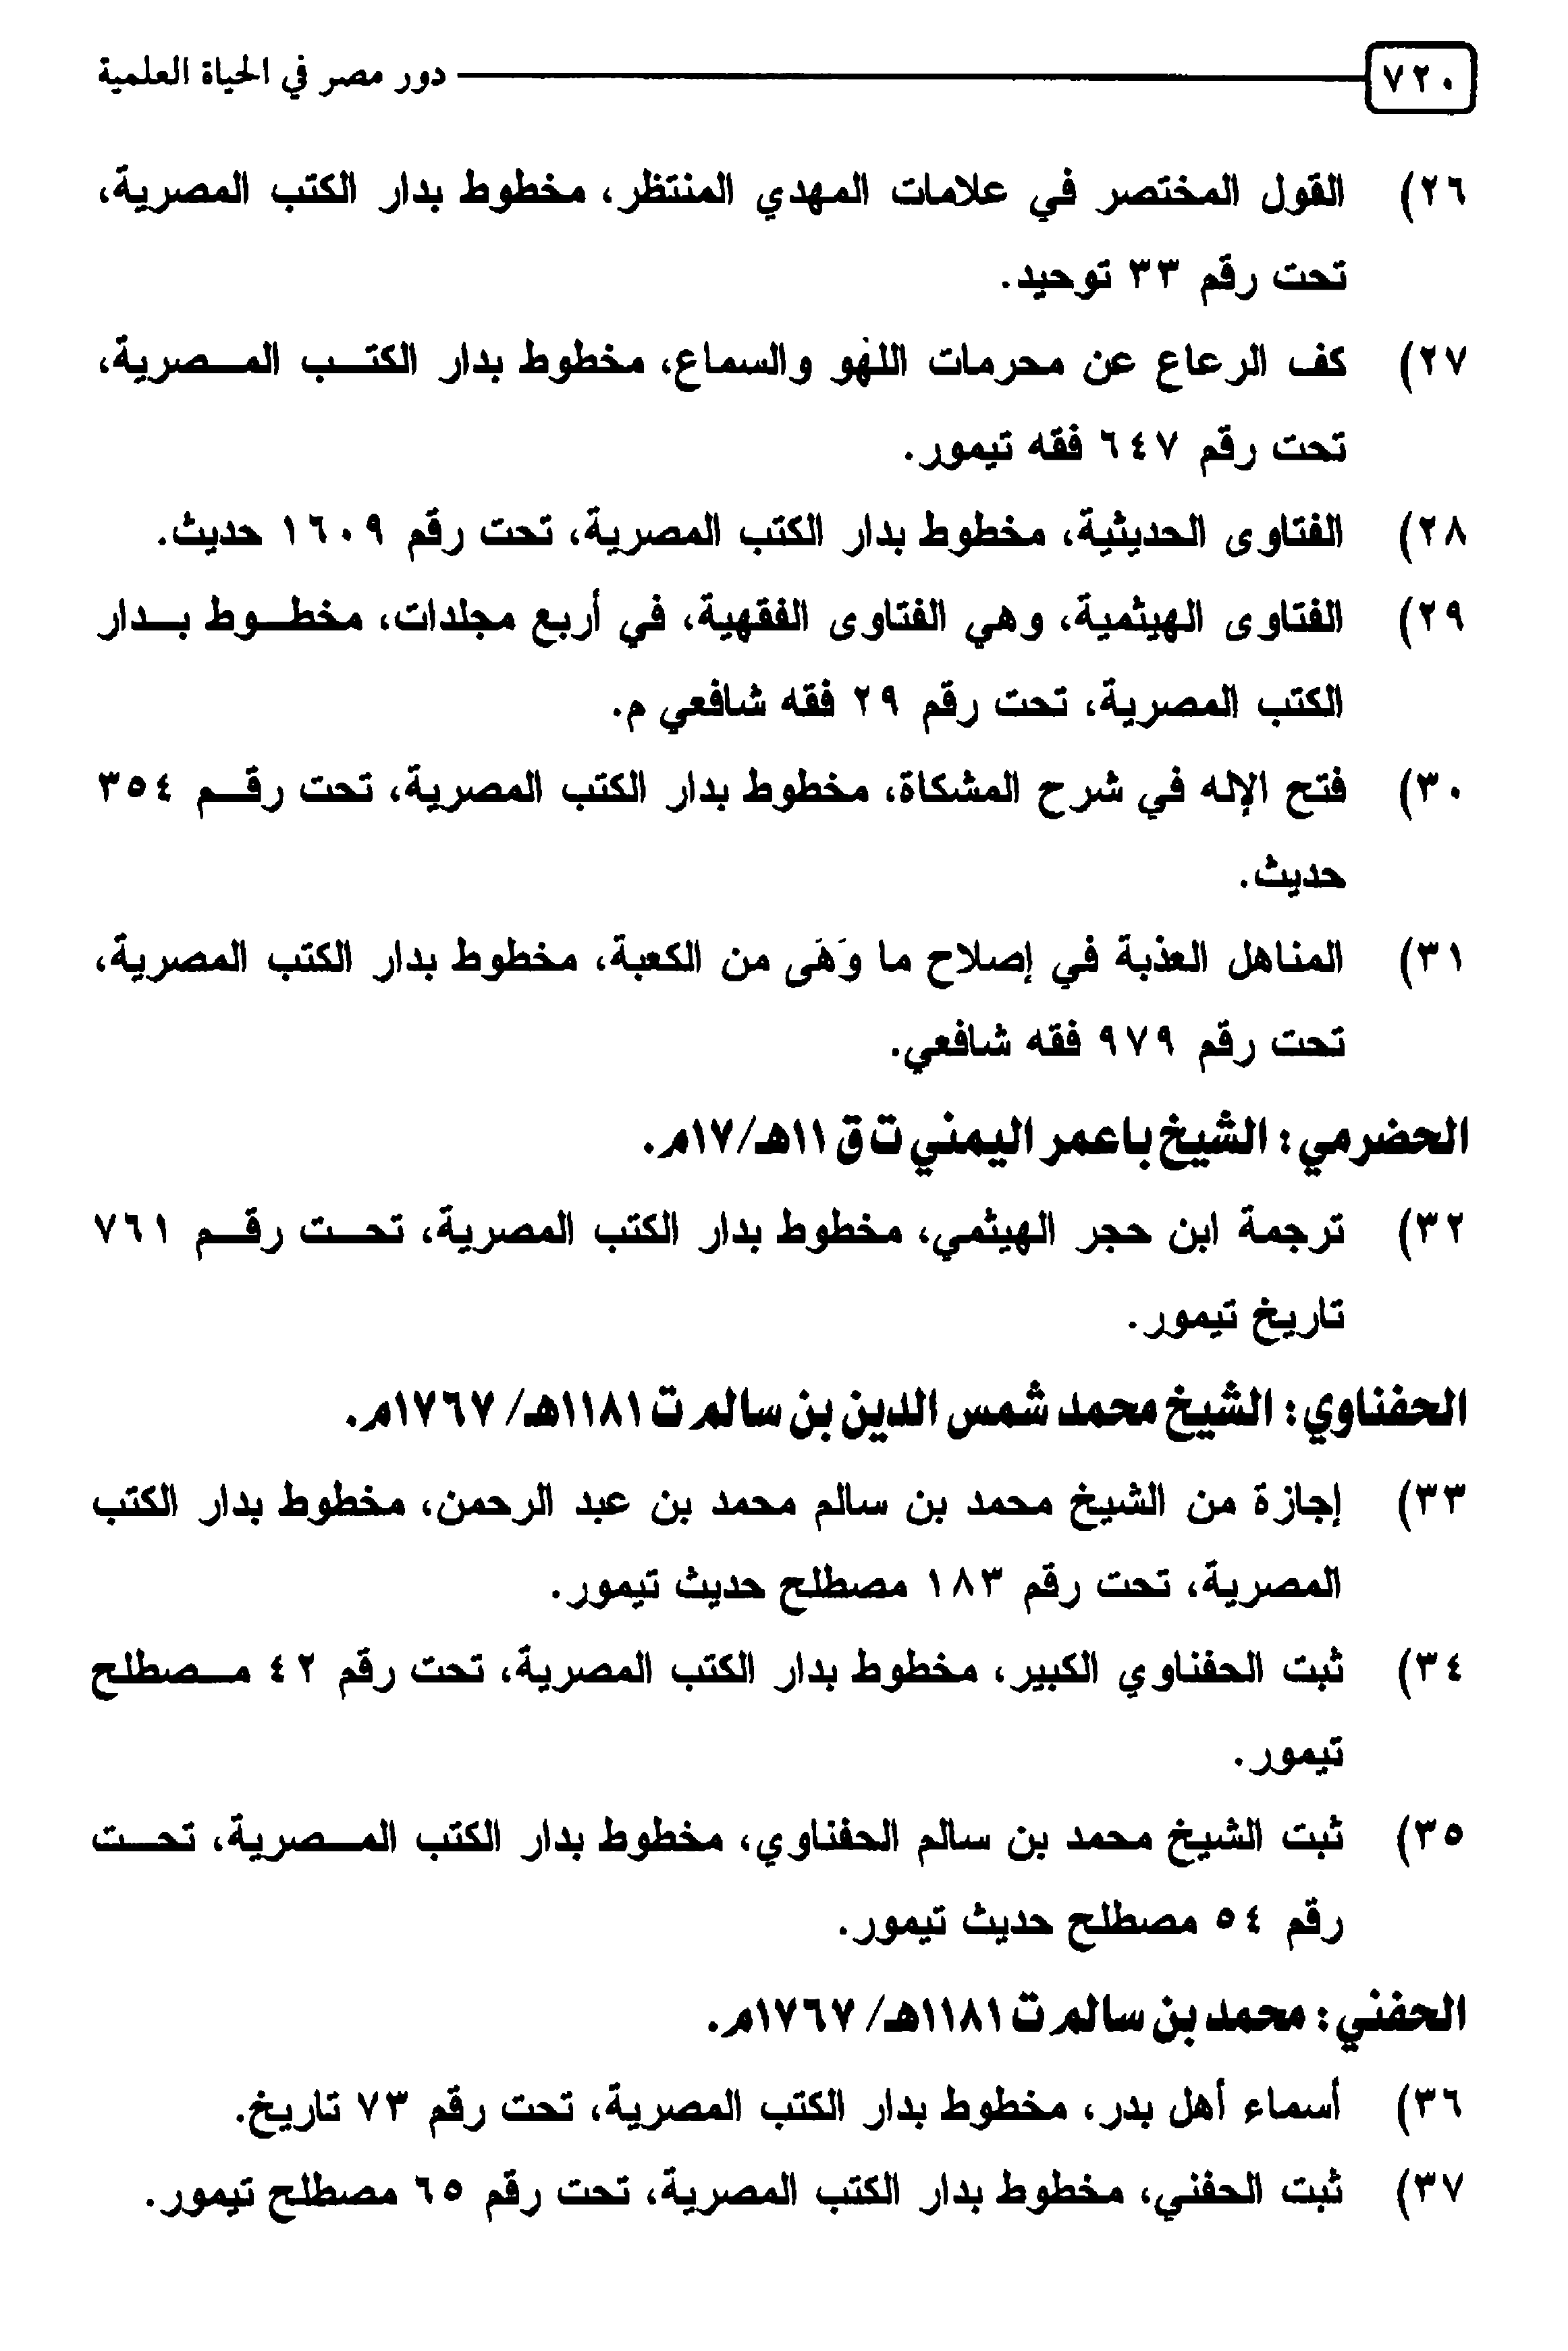 ٧٢٠ دور مصر في الحياة العلمية
٢٦) القول المختصر في علامات المهدي المنتظر، مخطوط بدار الكتب المصرية،
تحت رقم ٣٣ توحيد.
٢٧) كف الرعاع عن محرمات اللهو والسماع، مخطوط بدار الكتب المصرية،
تحت رقم ٦٤٧ فقه تيمور.
٢٨) الفتاوى الحديثية، مخطوط بدار الكتب المصرية، تحت رقم ١٦٠٩ حديث.
٢٩) الفتاوى الهيثمية، وهي الفتاوى الفقهية، في أربع مجلدات، مخطوط بدار
الكتب المصرية، تحت رقم ٢٩ فقه شافعي م.
٣٠) فتح الإله في شرح المشكاة، مخطوط بدار الكتب المصرية، تحت رقم ٣٥٤
حديث.
٣١) المناهل العذبة في إصلاح ما وَهَى من الكعبة، مخطوط بدار الكتب المصرية،
تحت رقم ٩٧٩ فقه شافعي.
الحضرمي: الشيخ باعمر اليمني ت ق ١١هـ/١٧م.
٣٢) ترجمة ابن حجر الهيثمي، مخطوط بدار الكتب المصرية، تحت رقم ٧٦١
تاريخ تيمور.
الحفناوي: الشيخ محمد شمس الدين بن سالم ت ١١٨١هـ/ ١٧٦٧م.
٣٣) إجازة من الشيخ محمد بن سالم محمد بن عبد الرحمن، مخطوط بدار الكتب
المصرية، تحت رقم ١٨٣ مصطلح حديث تيمور.
٣٤) ثبت الحفناوي الكبير، مخطوط بدار الكتب المصرية، تحت رقم ٤٢ مصطلح
تيمور.
٣٥) ثبت الشيخ محمد بن سالم الحفناوي، مخطوط بدار الكتب المصرية، تحت
رقم ٥٤ مصطلح حديث تيمور.
الحفني: محمد بن سالم ت ١١٨١هـ/ ١٧٦٧م.
٣٦) أسماء أهل بدر، مخطوط بدار الكتب المصرية، تحت رقم ٧٣ تاريخ.
٣٧) ثبت الحفني، مخطوط بدار الكتب المصرية، تحت رقم ٦٥ مصطلح تيمور.